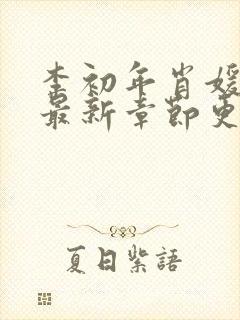 李初年肖媛
最新章節更
夏日紫語